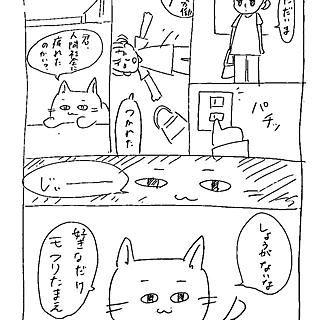 ただいま
パチッ
つかれた
君、
人間社会に
疲れた
のかい?
じぃ――
しょうがないな
好きなだけ
モフりたまえ